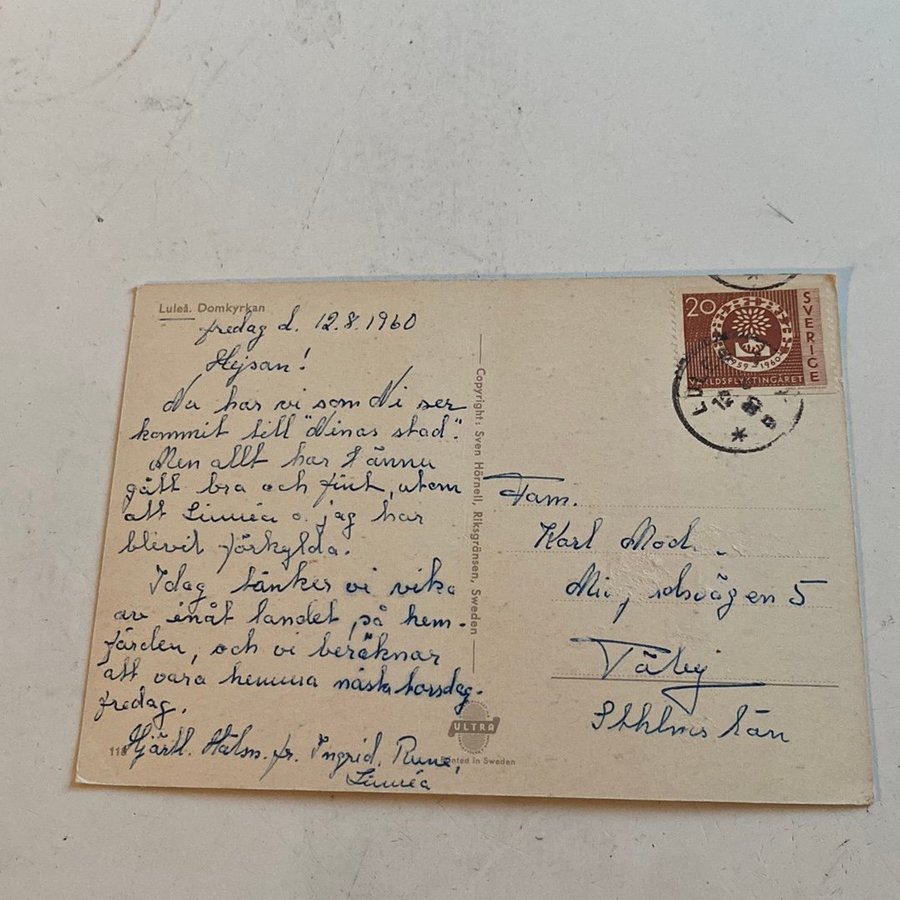 Luleå. Domkyrkan
fredag d. 12.8.1960
Hejsan!
Nu har vi som Ni ser
kommit till "Ninas stad".
Men allt har ännu
gått bra och fint, utom
att Linnéa o. jag har
blevit förkylda.
Idag tänker vi vika
av inåt landet, på hem-
färden, och vi beräknar
att vara hemma nästa torsdag-
fredag.
Hjärtl. Häls. fr. Ingrid, Rune,
Linnéa
118
Copyright: Sven Hörnell, Riksgränsen, Sweden
ULTRA
nted in Sweden
20
SVERIGE
1959-1960
RLDSFLYKTINGÅRET
Fam.
Karl
5
Täby
Sthlms län